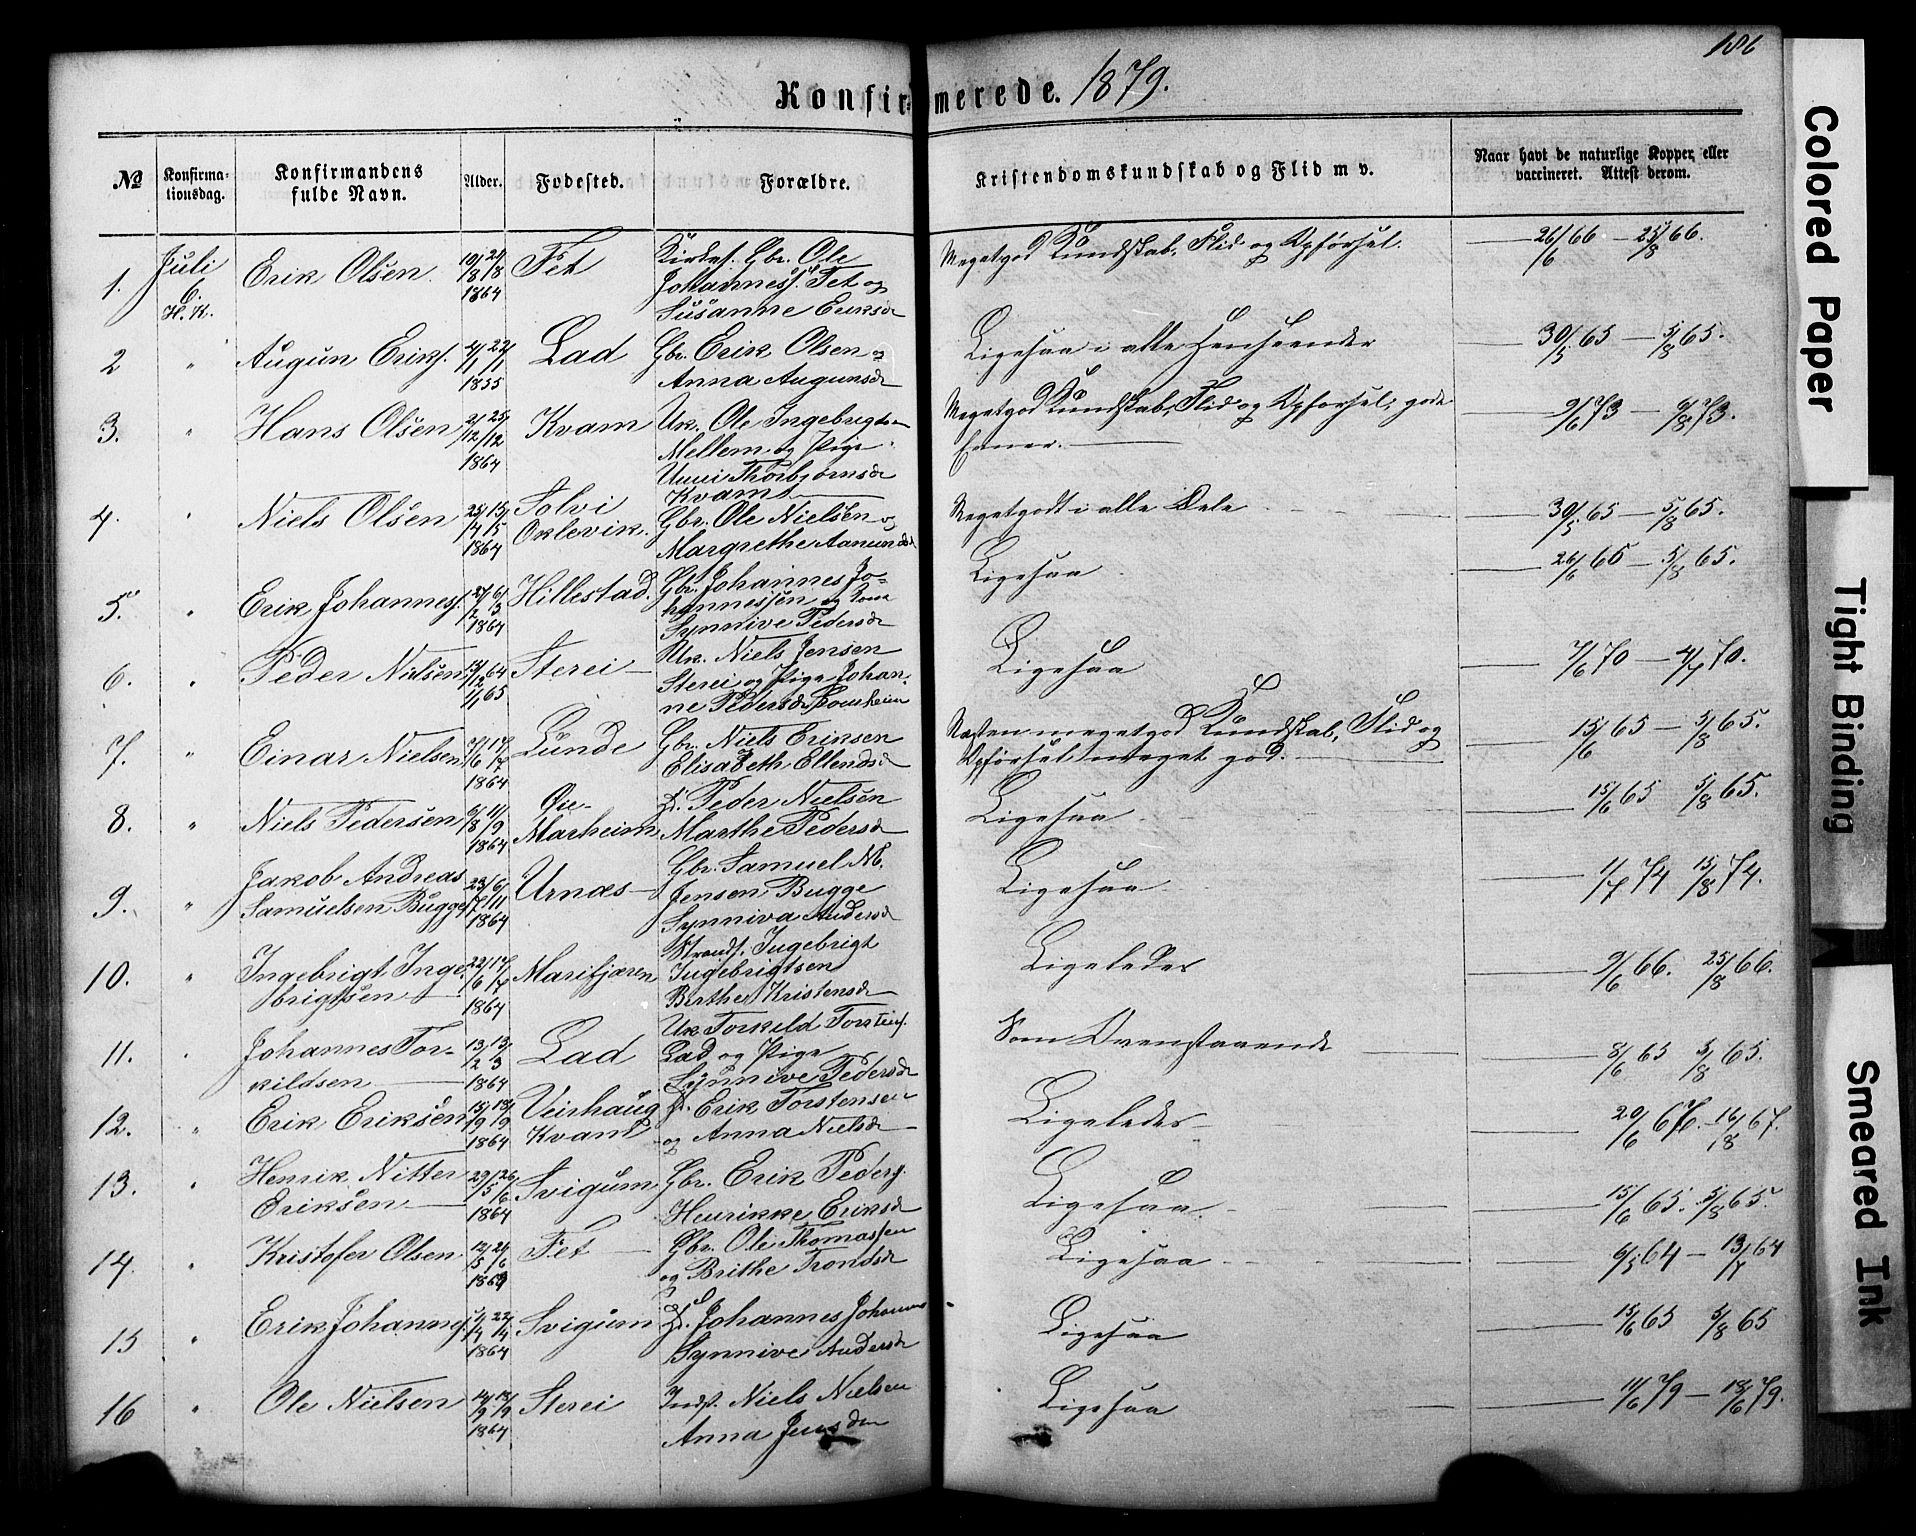 186
Konfirmerede. 1879.
№ Konfirma-tionsdag. Konfirmandens fulde Navn. Alder. Fødested. Forældre. Kristendomskundskab og Flid m v. Naar havt de naturlige Kopper, eller vaccineret. Attest derom.
1. Juli 6. H. K. Erik Olsen 1864 Fet Gbr. Ole
Johanness. Fet og
Susanne Eriksd
Megetgod Kundskab, Flid og Opførsel. 26/6 66 – 25/8 66.
2 " Augun Eriks. 22/1 Lad Gbr. Erik Olsen og
Anna Augunsd
Ligesaa i alle Henseender 30/5 65 – 5/8 65.
3. " Hans Olsen 21/12 25/12 1864 Kvam Uk. Ole Ingebrigts
Mellem og Pige
Unni Thorbjørnsd
Kvam
Megetgod Kundskab, Flid og Opførsel, gode
Evner. 9/6 73 – 6/8 73.
4. " Niels Olsen 25/4 15/5 1864 Solvi
Oklevik. Gbr. Ole Nielsen og
Margrethe Aamundsd
Megetgodt i alle Dele 30/5 65 – 5/8 65.
5. " Erik Johanness. 27/2 6/3 1864 Hillestad. Gbr. Johannes Jo-
hannessen og Kone
Synnive Pedersd
Ligesaa 26/6 65 – 5/8 65.
6. " Peder Nielsen Sterei Uk. Niels Jensen
Sterei og Pige Johan-
ne Pedersd
Ligesaa 7/6 70 – 4/7 70.
7. " Einar Nielsen 17/7 1864 Lunde Gbr. Niels Eriksen
Elisabeth Ellendsd
Næsten megetgod Kundskab, Flid og
Opførsel meget god. 15/6 65 – 5/8 65.
8. " Niels Pedersen 11/9 1864 Øv-
Marheim P. Peder Nielsen
Marthe Pedersd
Ligesaa 15/6 65 5/8 65.
9. " Jakob Andreas
Samuelsen Bugge 23/7 6/11 1864 Urnæs Gbr. Samuel M.
Jensen Bugge
Synniva Andersd
Ligesaa 1/7 74 15/8 74.
10. " Ingebrigt Inge-
brigtsen 22/6 17/7 1864 Marifjæren Strands. Ingebrigt
Ingebrigtsen
Berthe Kristensd
Ligeledes 9/6 66. 25/8 66.
11. " Johannes Tor-
kildsen 13/2 13/3 1864 Lad Uk Torkild Torstens.
Lad og Pige
Synnive Pedersd
Som Ovenstaaende 8/6 65 5/8 65.
12. " Erik Eriksen 15/9 18/9 1864 Veirhaug
Kvam P. Erik Torstensen
og Anna Nielsd
Ligeledes 20/6 67. 16/8 67.
13. " Henrik Nitter
Eriksen 29/5 26/6 1864 Svigum Gbr. Erik Peders.
Henrikke Eriksd
Ligesaa. 15/6 65. 5/8 65.
14. " Kristofer Olsen 12/5 24/6 Fet Gbr. Ole Thomassen
og Brithe Trondsd
Ligesaa 6/5 64 – 13/7 64
15 " Erik Johanness. 22/4 1864 Svigum P. Johannes Johannes
Synnive Andersd
Ligesaa 15/6 65 5/8 65
16 " Ole Nielsen 14/9 18/9 1864 Sterei Inds. Niels Nielsen
Anna Jensden
Ligesaa 11/6 79 – 18/6 79.
Colored Paper
Tight Binding
Smeared Ink